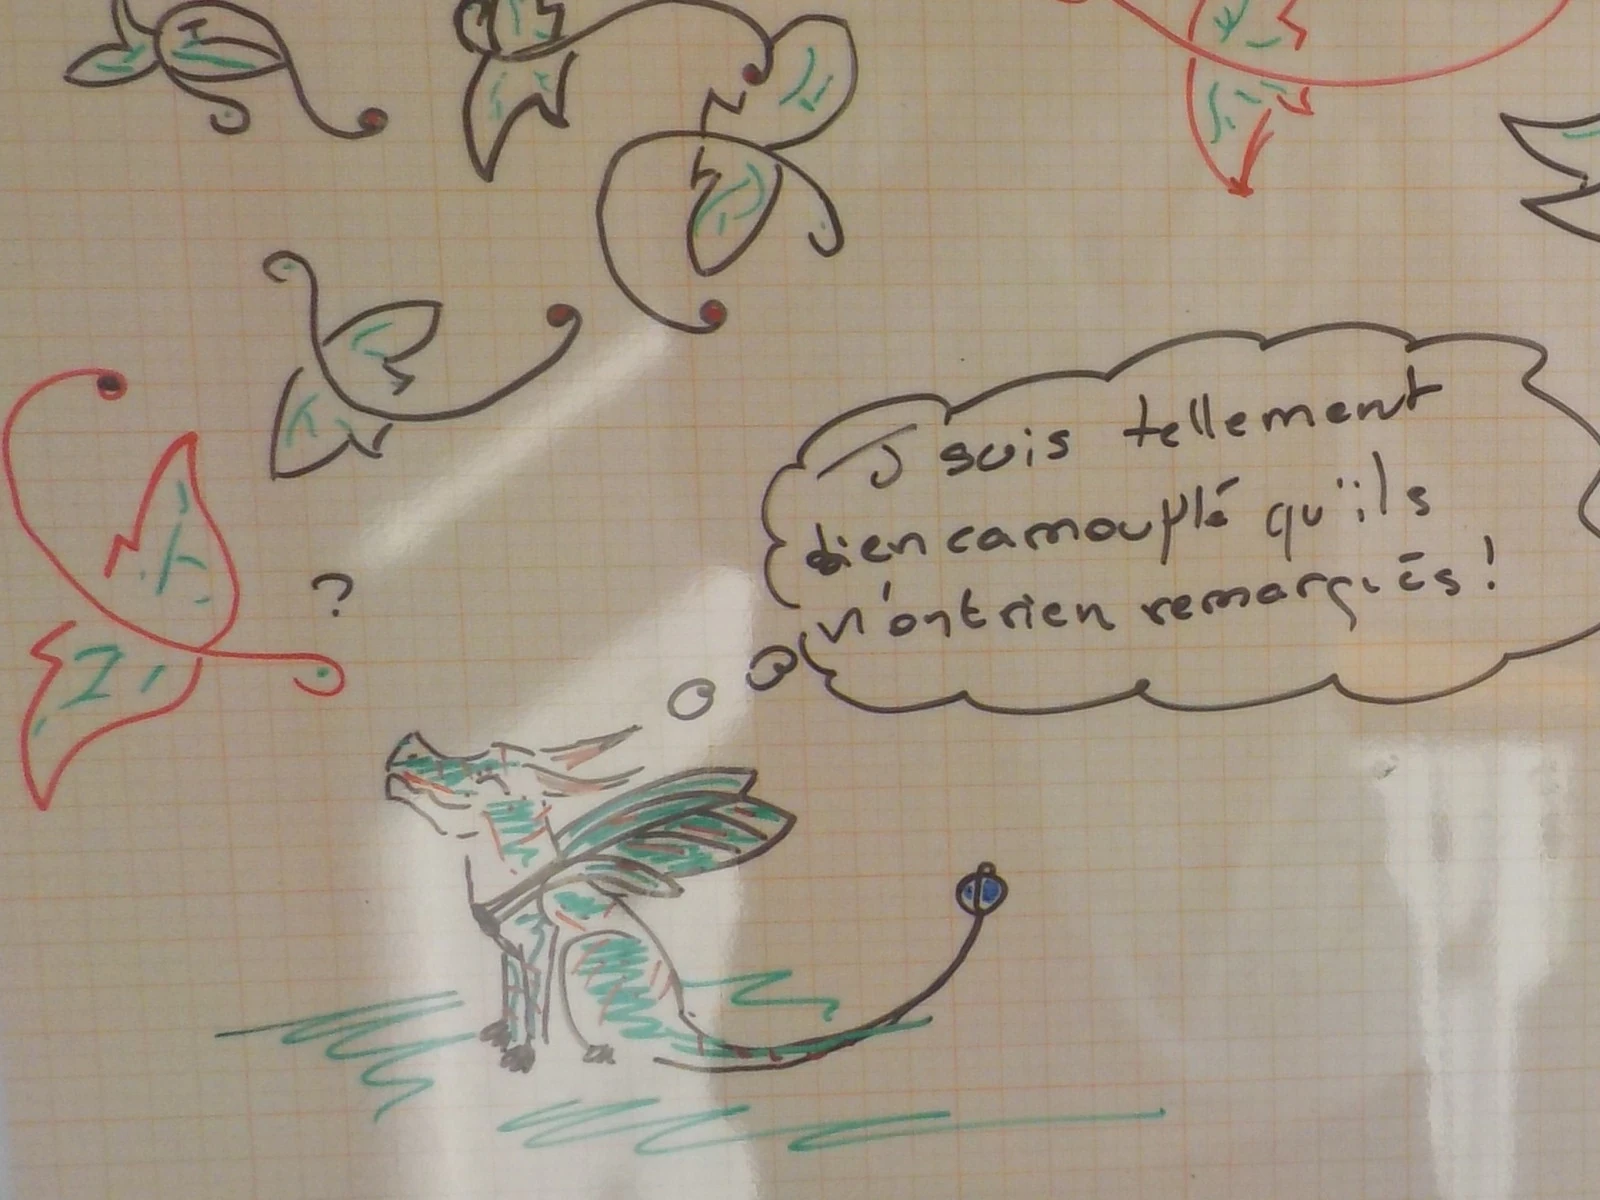 J suis tellement
bien camouflé qu'ils
n'ont rien remarqués!
?